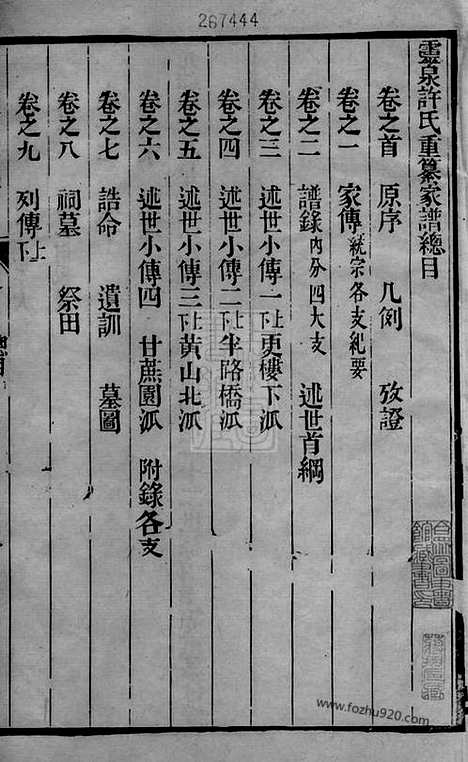 267444
靈泉許氏重纂家譜總目
卷之首　原序　凡例　攷證
卷之一　家傳統宗各支紀要
卷之二　譜錄內分四大支　述世首綱
卷之三　述世小傳一上下更樓下派
卷之四　述世小傳二上下半路橋派
卷之五　述世小傳三上下黃山北派
卷之六　述世小傳四　甘蔗園派　附錄各支
卷之七　誥命　遺訓　墓圖
卷之八　祠墓　祭田
卷之九　列傳上下
www.fozhu920.com